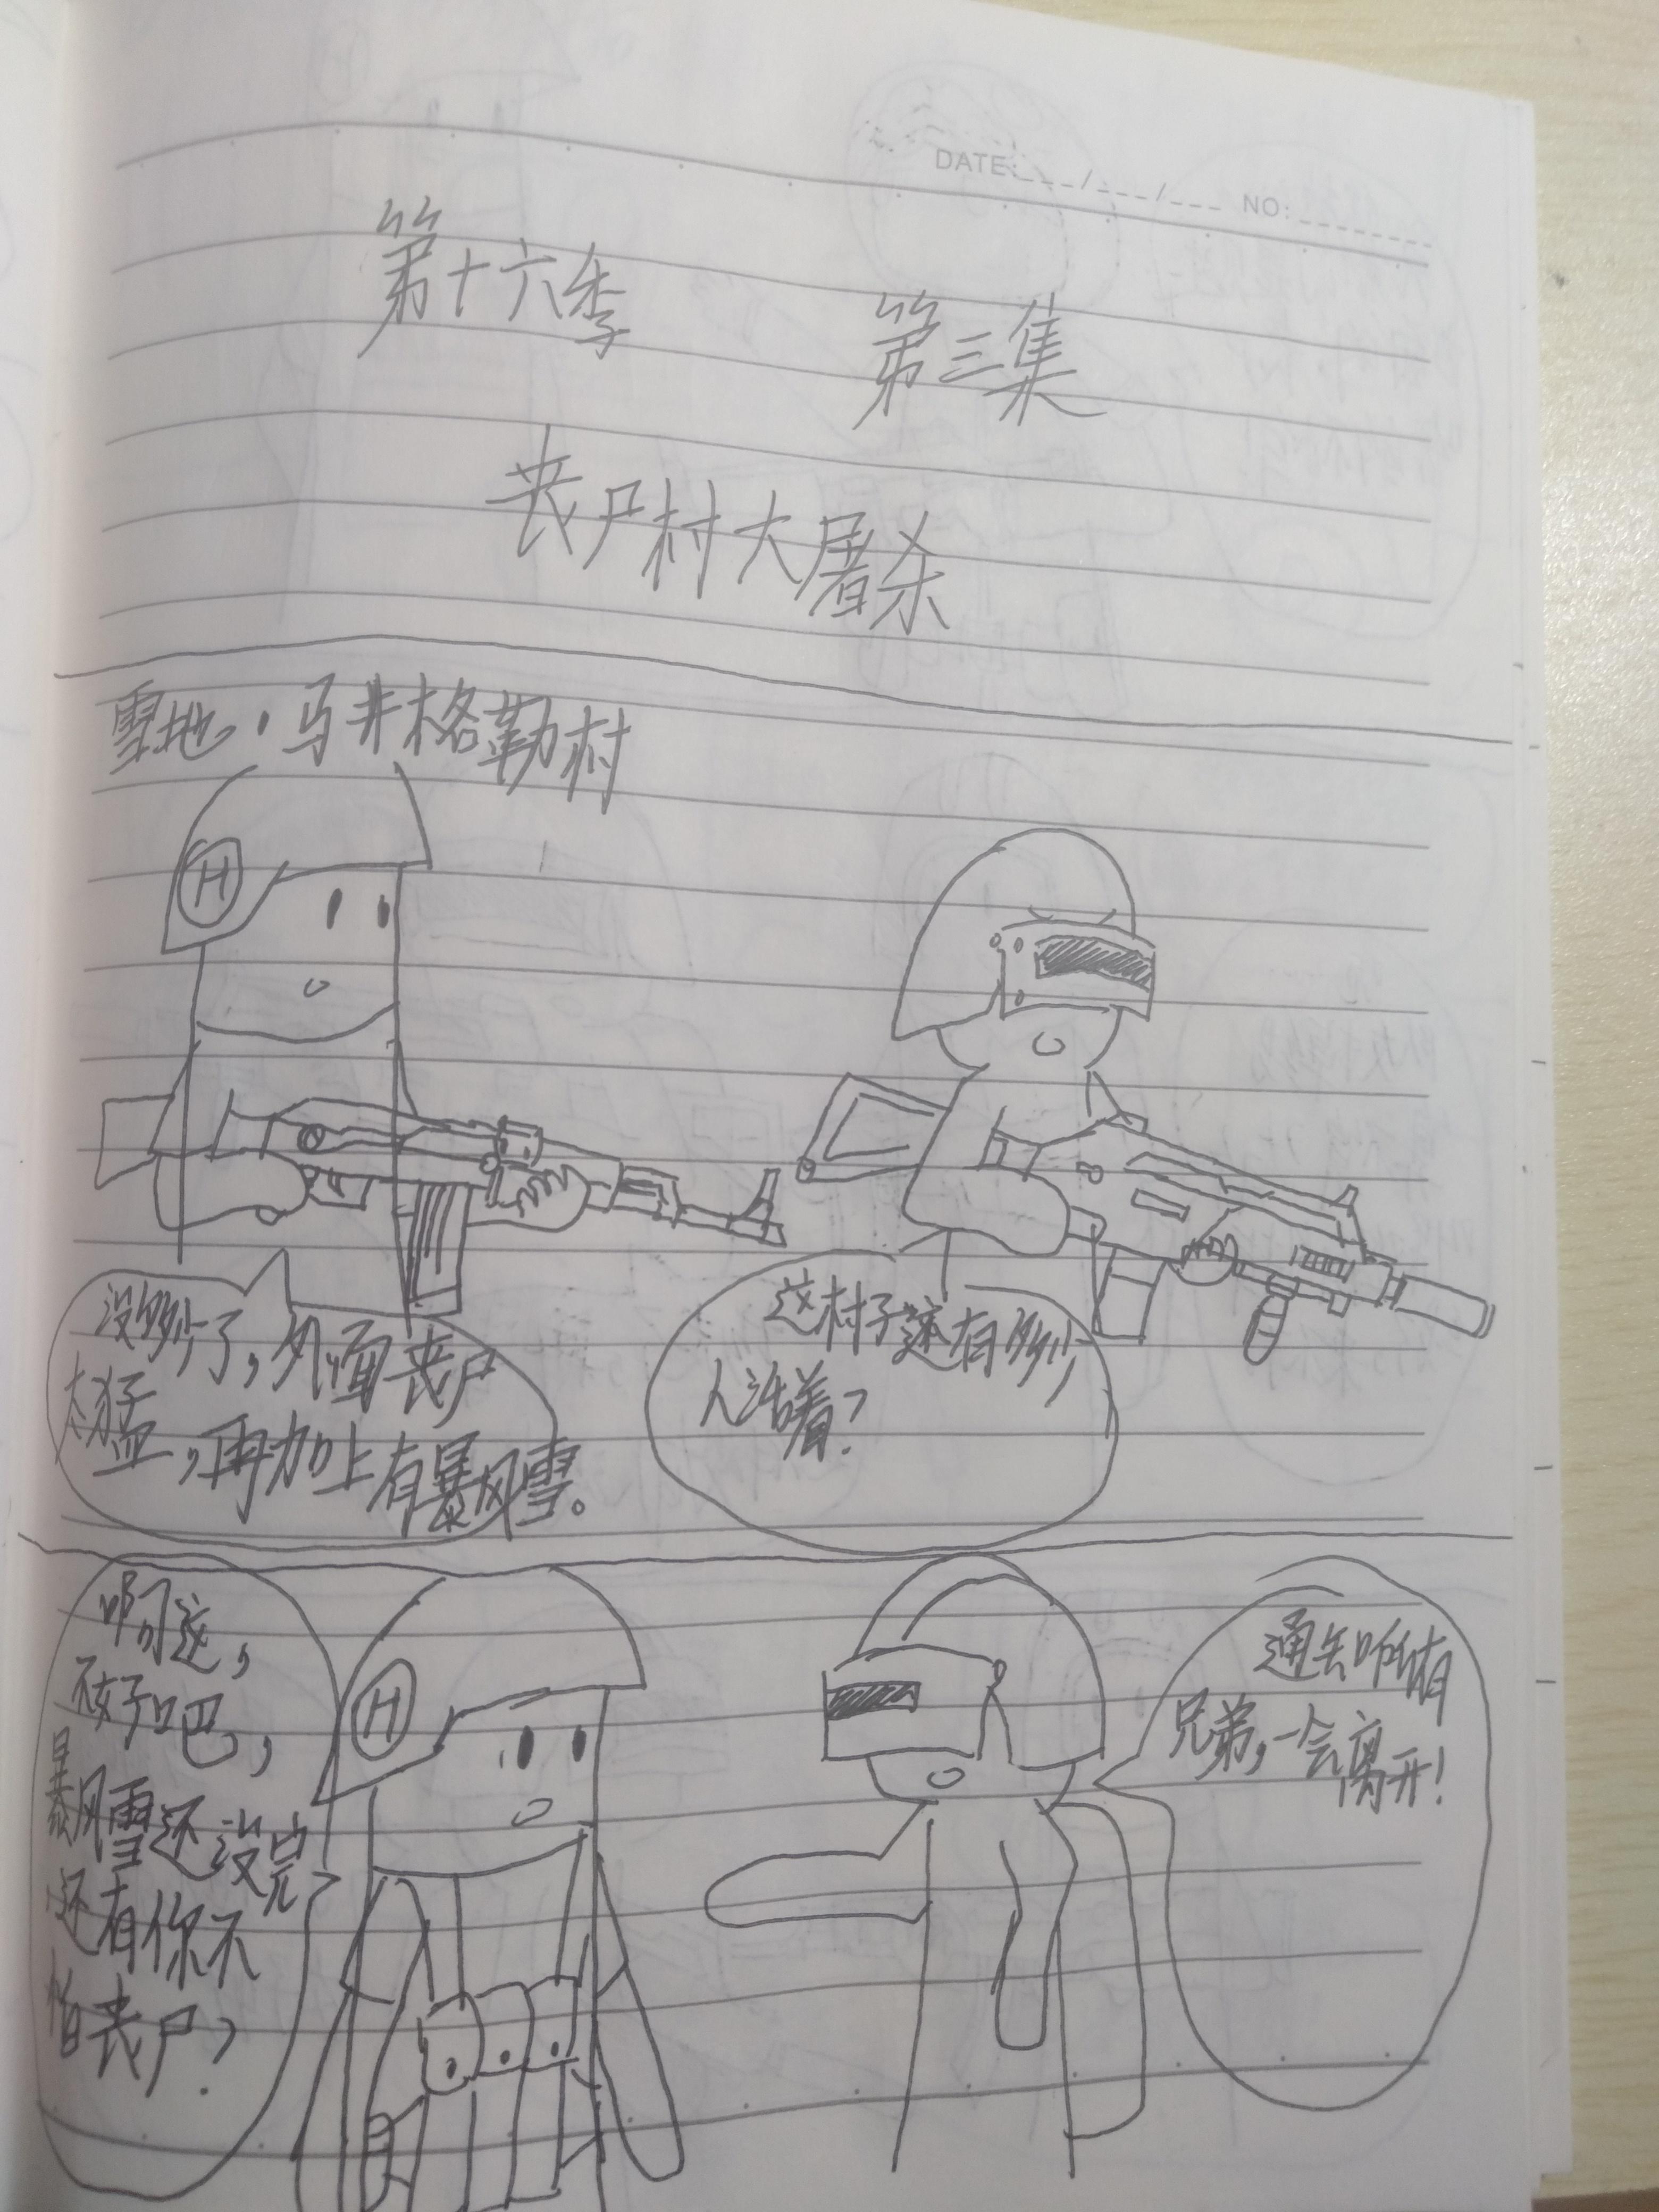 DATE:___/___/___ NO:________
第十六季 第三集
丧尸村大屠杀
雪地·马井格勒村
H
没多少了，外面丧尸
太猛，再加上有暴风雪。
这村子还有多少
人活着？
啊这，
不好吧，
暴风雪还没完
还有你不
怕丧尸？
H
通知所有
兄弟，一会离开！